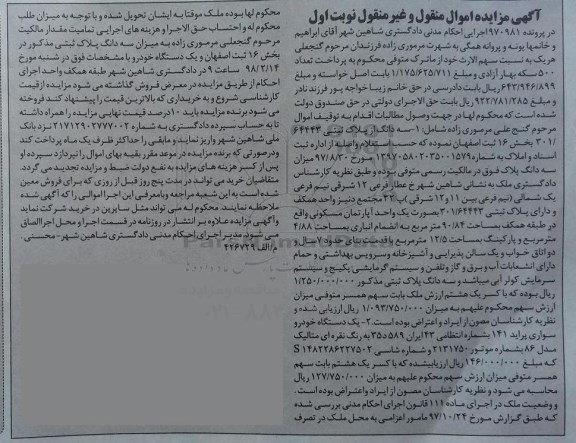 آگهی مزایده اموال منقول و غیر منقول نوبت اول
در پرونده ۹۷۰۹۸۱ اجرایی احکام مدنی دادگستری شاهین شهر آقای ابراهیم
و خانمها پونه و پروانه همگی به شهرت مرموری زاده فرزندان مرحوم گنجعلی
هریک به نسبت سهم الارث خود از ماترک متوفی محکوم به پرداخت تعداد
۵۰۰ سکه بهار آزادی و مبلغ ۱/۱۷۵/۶۲۵/۷۱۱ بابت اصل خواسته و مبلغ
۶۴۳/۹۴۶/۸۹۹ ریال بابت دادرسی در حق خانم زیبا خواجه پور فرزند نادر
و مبلغ ۹۲۲/۷۸۱/۲۸۵ ریال بابت حق الاجرای دولتی در حق صندوق دولت
شده است که محکوم لها در جهت وصول مطالبات اقدام به توقیف اموال
مرحوم گنج علی مرموری زاده شامل: ۱-سه دانگ از پلاک ثبتی ۶۴۴۴۳
/۳۰۱ بخش ۱۶ ثبت اصفهان نموده که حسب استعلام واصله از اداره ثبت
اسناد و املاک به شماره ۱۳۹۷۰۵۸۰۲۰۳۵۰۰۱۵۷۹ مورخ ۹۷/۸/۳۰ میزان
سه دانگ پلاک فوق در مالکیت رسمی متوفی بوده و طبق نظریه کارشناس
دادگستری ملک به نشانی شاهین شهر خ عطار فرعی ۱۲ شرقی نیم فرعی
یک شمالی (نیم فرعی بین ۱۱ و ۱۲ شرقی) پ ۲۲ مجتمع دنیز واحد همکف
و دارای پلاک ثبتی ۳۰۱/۶۴۴۴۳ بصورت یک واحد آپارتمان مسکونی واقع
در طبقه همکف بمساحت ۹۰/۸۴ متر مربع به انضمام انباری بمساحت ۴/۸۸
مترمربع و پارکینگ بمساحت ۱۲/۵ مترمربع با قدمت بنای حدود ۷ سال و
دو اتاق خواب و یک سالن پذیرایی و آشپزخانه و سرویس بهداشتی و حمام
دارای انشعابات آب و برق و گاز و تلفن و سیستم گرمایشی پکیج و سیستم
سرمایش کولر آبی میباشد و سه دانگ پلاک ثبتی مذکور ۱/۲۵۰/۰۰۰/۰۰۰
ریال بوده که با کسر یک هشتم ارزش ملک بابت سهم همسر متوفی میزان
ارزش سهم محکوم علیهم به میزان ۱/۰۹۳/۷۵۰/۰۰۰ ریال ارزیابی شده و
نظریه کارشناسان مصون از ایراد و اعتراض بوده است. ۲- یک دستگاه خودرو
سواری پراید ۱۴۱ بشماره انتظامی ۴۳ ایران ۵۸۹ د ۳۵ به رنگ نقره ای متالیک
مدل ۸۶ بشماره موتور ۲۱۳۱۷۵۰ و شماره شاسی S ۱۴۸۲۲۸۶۲۲۷۵۰۲
که مبلغ ۱۴۶/۰۰۰/۰۰۰ ریال ارزیابیشده که با کسر یک هشتم بابت سهم
همسر متوفی میزان ارزش سهم محکوم علیهم به میزان ۱۲۷/۷۵۰/۰۰۰ ریال
محاسبه می شود و نظریه کارشناسان مصون از ایراد و اعتراض بوده است.
و وضعیت ملک در اجرای ماده ۱۱۱ قانون اجرای احکام مدنی بررسی شده
که طبق گزارش مورخ ۹۷/۱۰/۲۴ مامور اعزامی به محل ملک در تصرف
محکوم لها بوده ملک موقتا به ایشان تحویل شده و با توجه به میزان طلب
محکوم له و احتساب حق الاجرا و هزینه های اجرایی تمامیت مقدار مالکیت
مرحوم گنجعلی مرموری زاده به میزان سه دانگ پلاک ثبتی مذکور در
بخش ۱۶ ثبت اصفهان و یک دستگاه خودرو با مشخصات فوق در شنبه مورخ
۹۸/۲/۱۴ ساعت ۹ در دادگستری شاهین شهر طبقه همکف واحد اجرای
احکام از طریق مزایده در معرض فروش گذاشته می شود مزایده از قیمت
کارشناسی شروع و به خریداری که بالاترین قیمت را پیشنهاد کند فروخته
می شود برنده مزایده باید ۱۰ درصد قیمت نهایی مزایده را همراه داشته
تا به حساب سپرده دادگستری به شماره ۲۱۷۱۲۹۰۲۷۷۷۰۰۲ نزد بانک
ملی شاهین شهر واریز نماید و مابقی را حداکثر ظرف یک ماه پرداخت کند
ودرصورتی که برنده مزایده در موعد مقرر بقیه بهای اموال را نپردازد سپرده او
پس از کسر هزینه های مزایده به نفع دولت ضبط و مزایده تجدید می گردد.
متقاضیان خرید می تواند در مدت پنج روز قبل از روزی که برای فروش معین
شده است به این شعبه مراجعه و بامعرفی این اجرا اموالی را که آگهی شده
ملاحظه نمایند. محکوم له می تواند مثل سایرین در خرید شرکت نماید
و آگهی مزایده علاوه بر انتشار در روزنامه در قسمت اجرا و محل اجرا الصاق
می شود. مدیر اجرای احکام مدنی دادگستری شاهین شهر- محسنی.
م/الف ۴۲۶۷۲۹